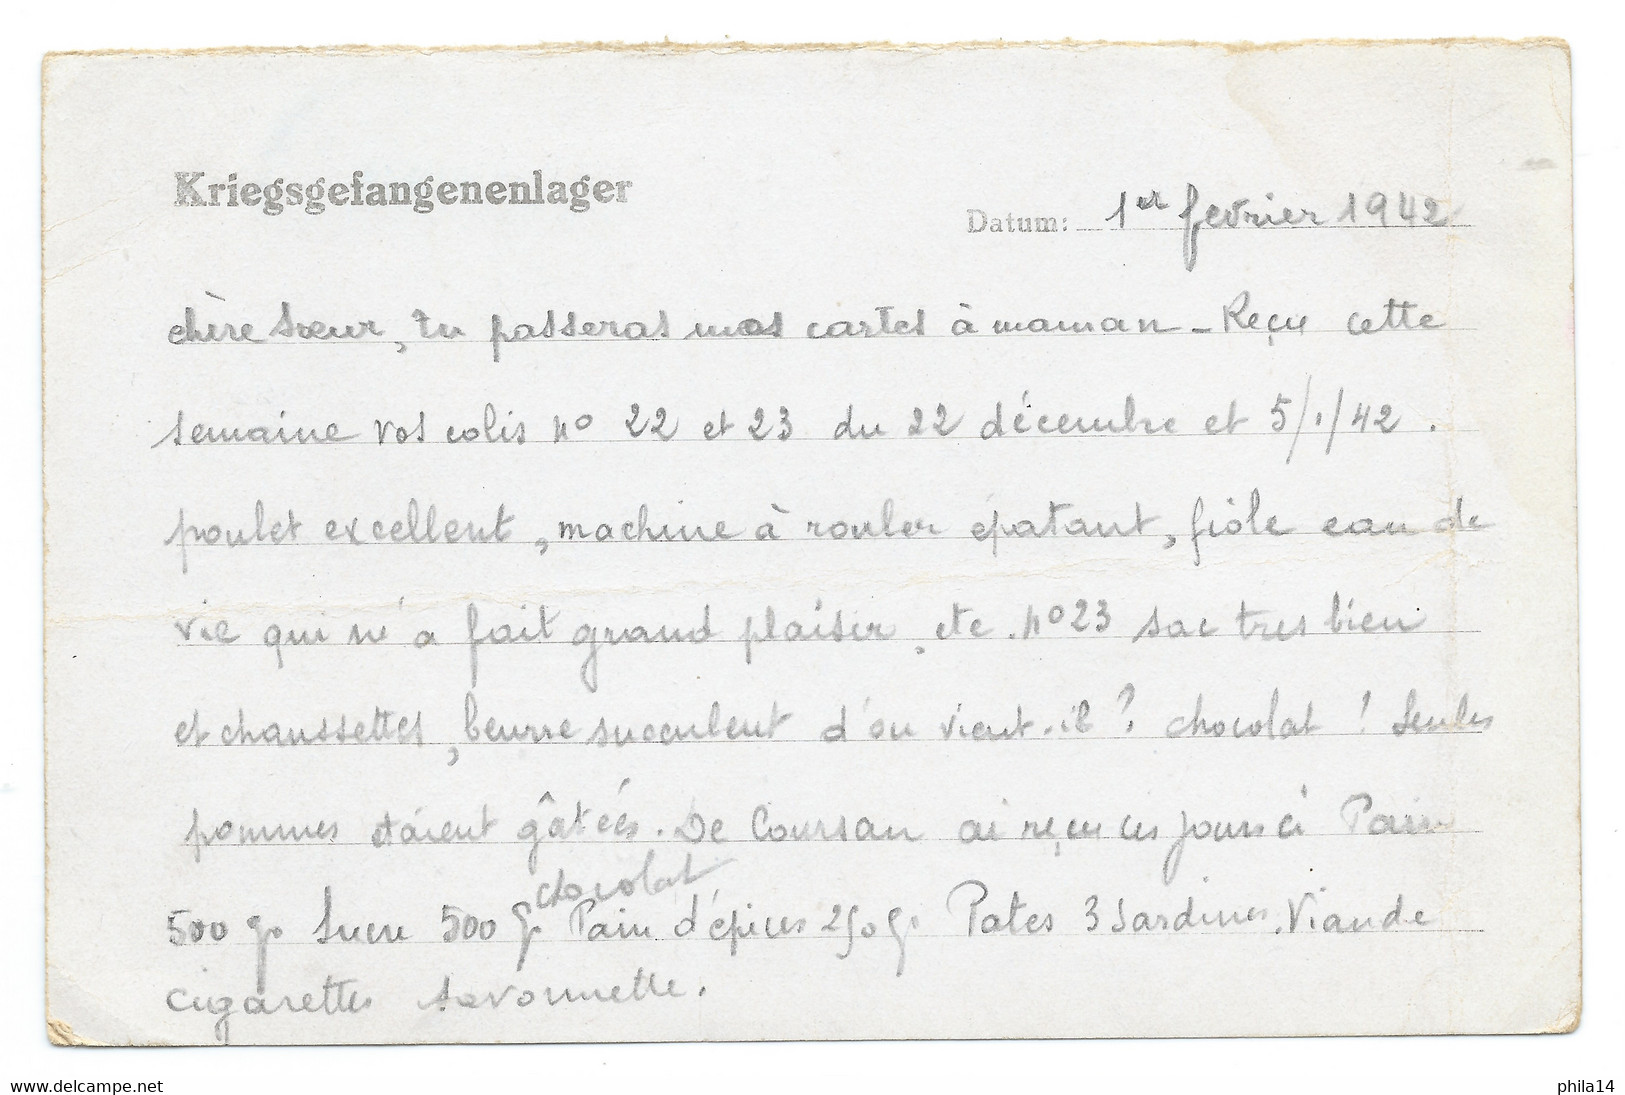 Kriegsgefangenenlager
Datum: 1er fevrier 1942
chère sœur, tu passeras mos cartes à maman - Reçu cette
semaine vos colis no 22 et 23 du 22 décembre et 5/1/42.
poulet excellent, machine à rouler épatant, fiole eau de
vie qui m'a fait grand plaisir, etc. no 23 sac tres bien
et chaussettes, beurre succulent d'ou vient-il? chocolat! Seules
pommes étaient gâtées. De Coursan ai reçu ces jours ci Pain
chocolat
500 g. Sucre 500 g. Pain d'épices 250 g. Pates 3 Sardines. Viande
Cigarettes savonnette.
delcampe.net
phila14